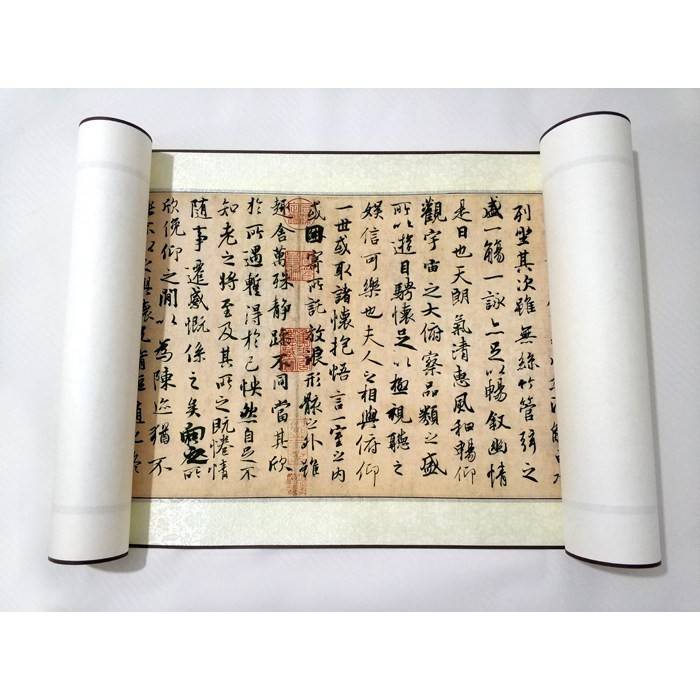 列坐其次雖無絲竹管弦之
盛一觴一詠亦足以暢敘幽情
是日也天朗氣清惠風和暢仰
觀宇宙之大俯察品類之盛
所以遊目騁懷足以極視聽之
娛信可樂也夫人之相與俯仰
一世或取諸懷抱悟言一室之內
或因寄所託放浪形骸之外雖
趣舍萬殊靜躁不同當其欣
於所遇暫得於己怏然自足不
知老之將至及其所之既惓情
隨事遷感慨係之矣向之所
欣俛仰之閒以為陳迹猶不